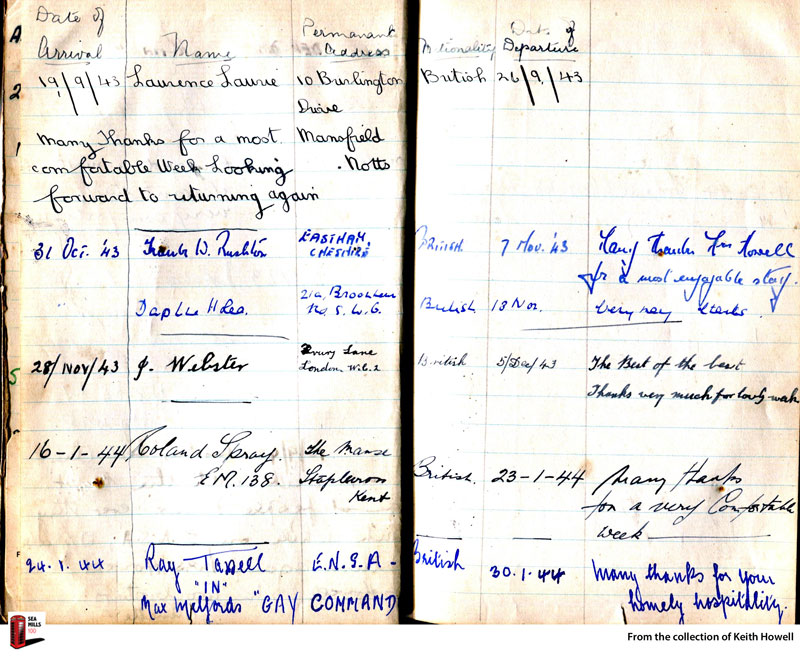 Date of Permanant Date of
Arrival Name Address Nationality Departure
19/9/43 Laurence Laurie 10 Burlington British 26/9/43
Drive
Many Thanks for a most Mansfield
comfortable Week Looking Notts
forward to returning again
31 Oct. '43 Frank W. Rushton EASTHAM, BRITISH. 7 Nov. '43 Many thanks Mrs Howell
CHESHIRE
for a most enjoyable stay.
Daphne 21a, British 13 Nov. Very many thanks.
Rd, S.W.6.
28/Nov/43 J. Webster Drury Lane British 5/Dec/43 The Best of the best
London W.C.2 Thanks very much for lovely week
16-1-44 Roland Spray. The Manse British. 23-1-44 Many Thanks
E.M. 138. Staplecross for a very Comfortable
Kent week
24.1.44 Ray E.N.S.A- British 30.1.44 Many thanks for your
"IN" homely hospitality.
Max Melfords "GAY COMMAND
SEA
MILLS
100
From the collection of Keith Howell